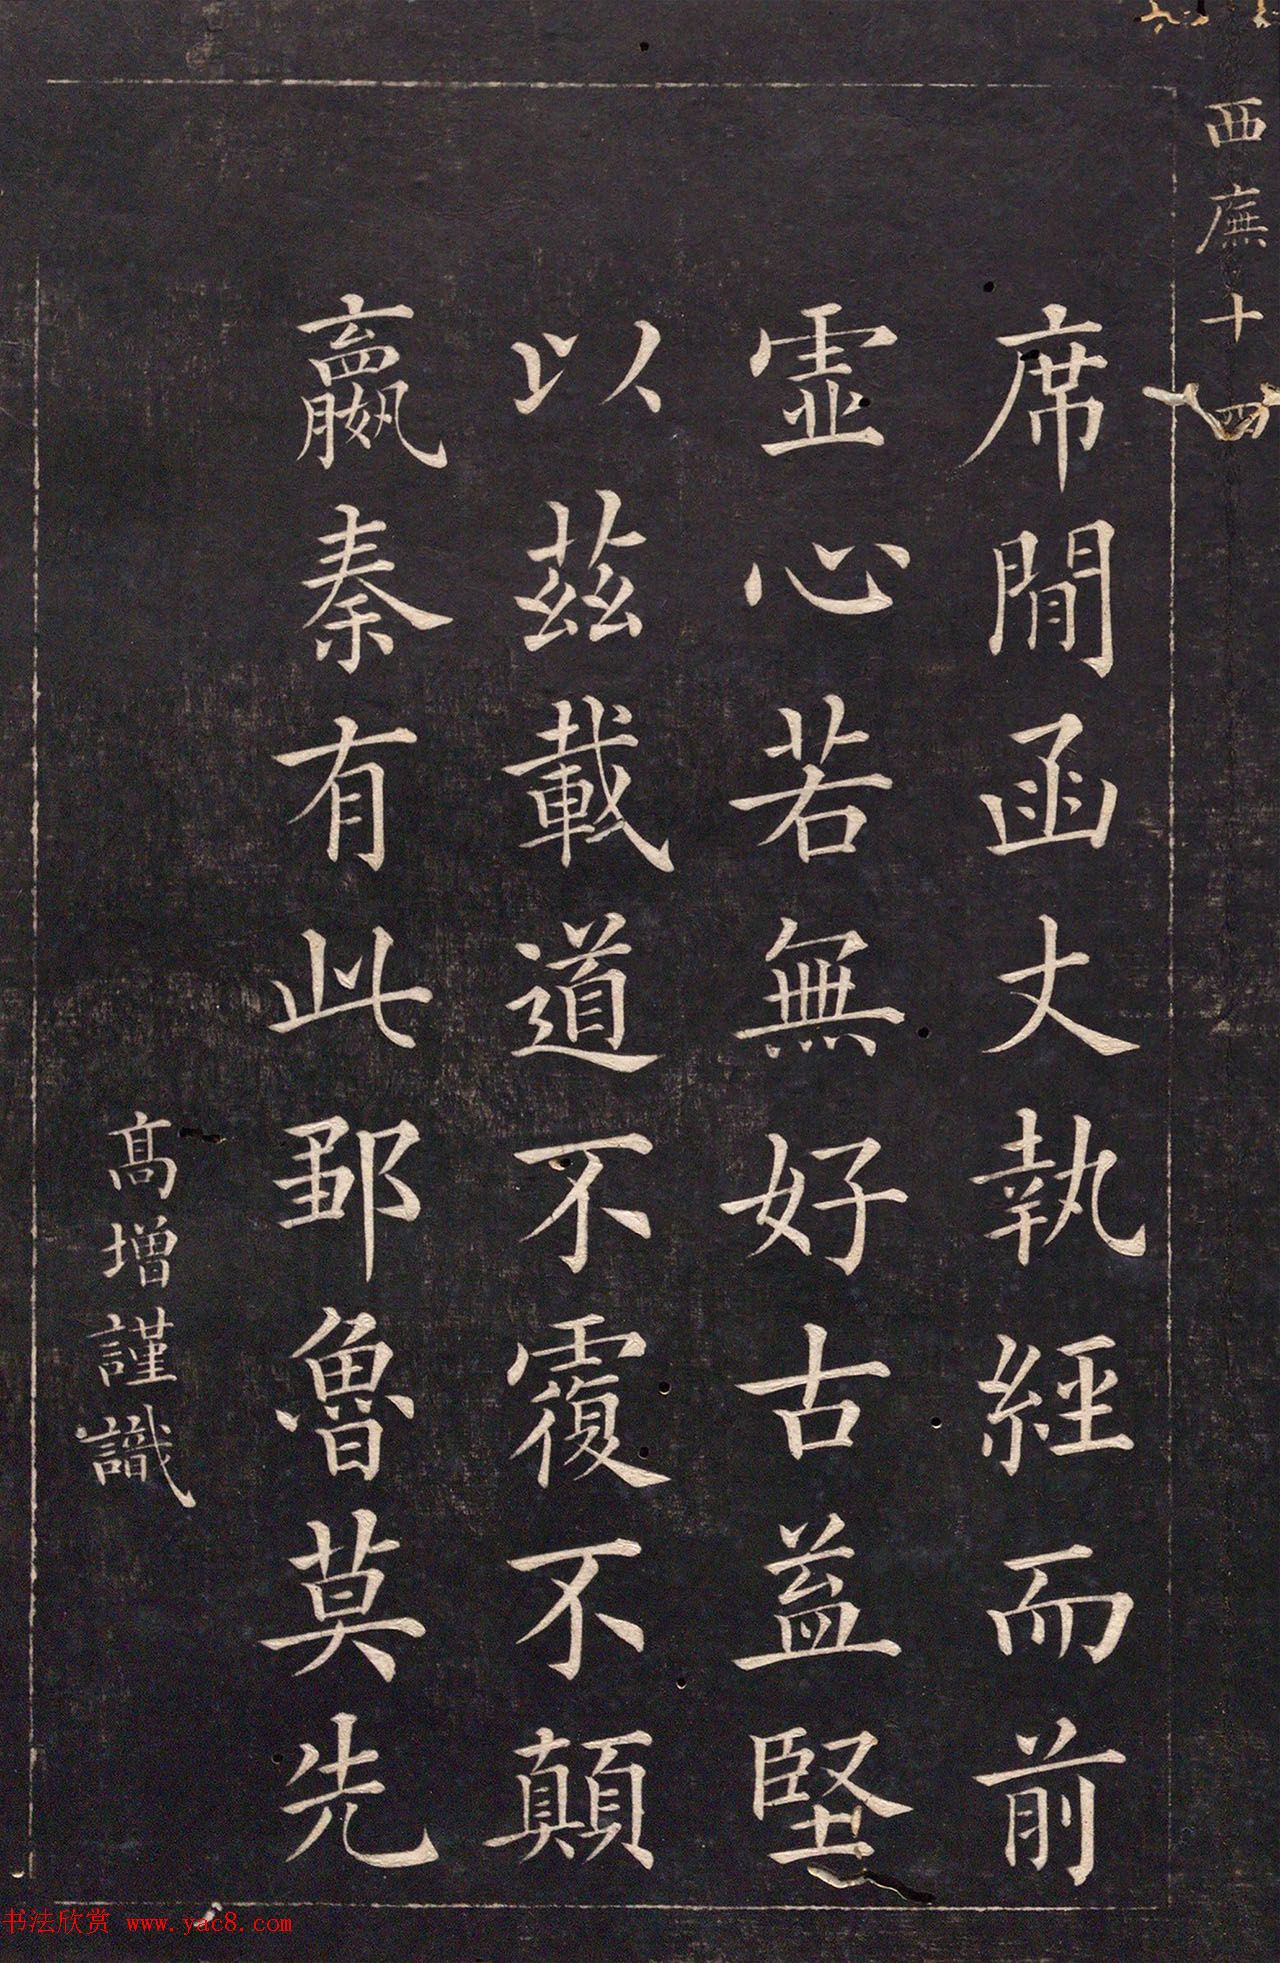 西廡十四
席閒函丈執經而前
虛心若無好古益堅
以茲載道不覆不顛
嬴秦有此鄒魯莫先
高增謹識
书法欣赏 www.yac8.com